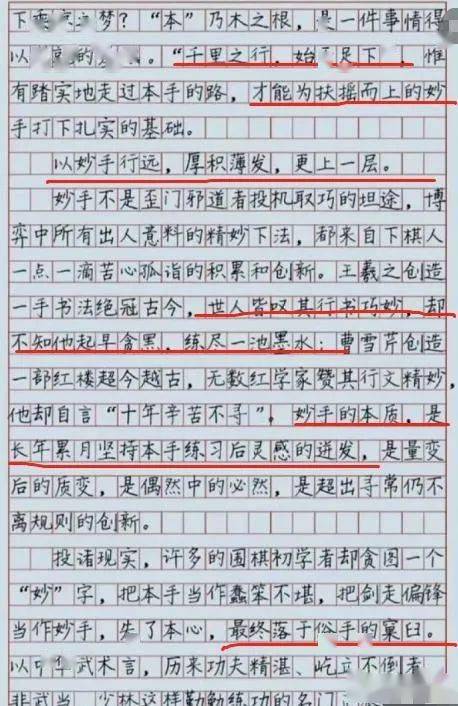 下乘高之梦？“本”乃木之根，是一件事情得
以 的 。“千里之行，始 足下”，惟
有踏实地走过本手的路，才能为扶摇而上的妙
手打下扎实的基础。
以妙手行远，厚积薄发，更上一层。
妙手不是歪门邪道者投机取巧的坦途，博
弈中所有出人意料的精妙下法，都来自下棋人
一点一滴苦心孤诣的积累和创新。王羲之创造
一手书法绝冠古今，世人皆叹其行书巧妙，却
不知他起早贪黑，练尽一池墨水；曹雪芹创造
一部红楼超今越古，无数红学家赞其行文精妙，
他却自言“十年辛苦不寻”，妙手的本质，是
长年累月坚持本手练习后灵感的迸发，是量变
后的质变，是偶然中的必然，是超出寻常仍不
离规则的创新。
投诸现实，许多的围棋初学者却贪图一个
“妙”字，把本手当作蠢笨不堪，把剑走偏锋
当作妙手，失了本心，最终落于俗手的窠臼。
以中华武术言，历来功夫精湛、屹立不倒者，
非武当、少林这样勤勤练功的名门